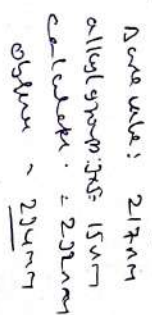 Base value: 217nm
allyl group: 3x5= 15nm
Calculate. = 232nm
observe = 234nm